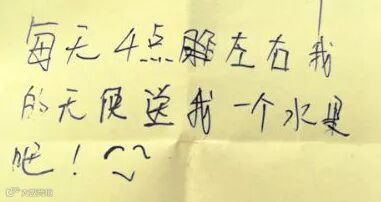 每天4点醒左右我
的天使送我一个水果
吧！